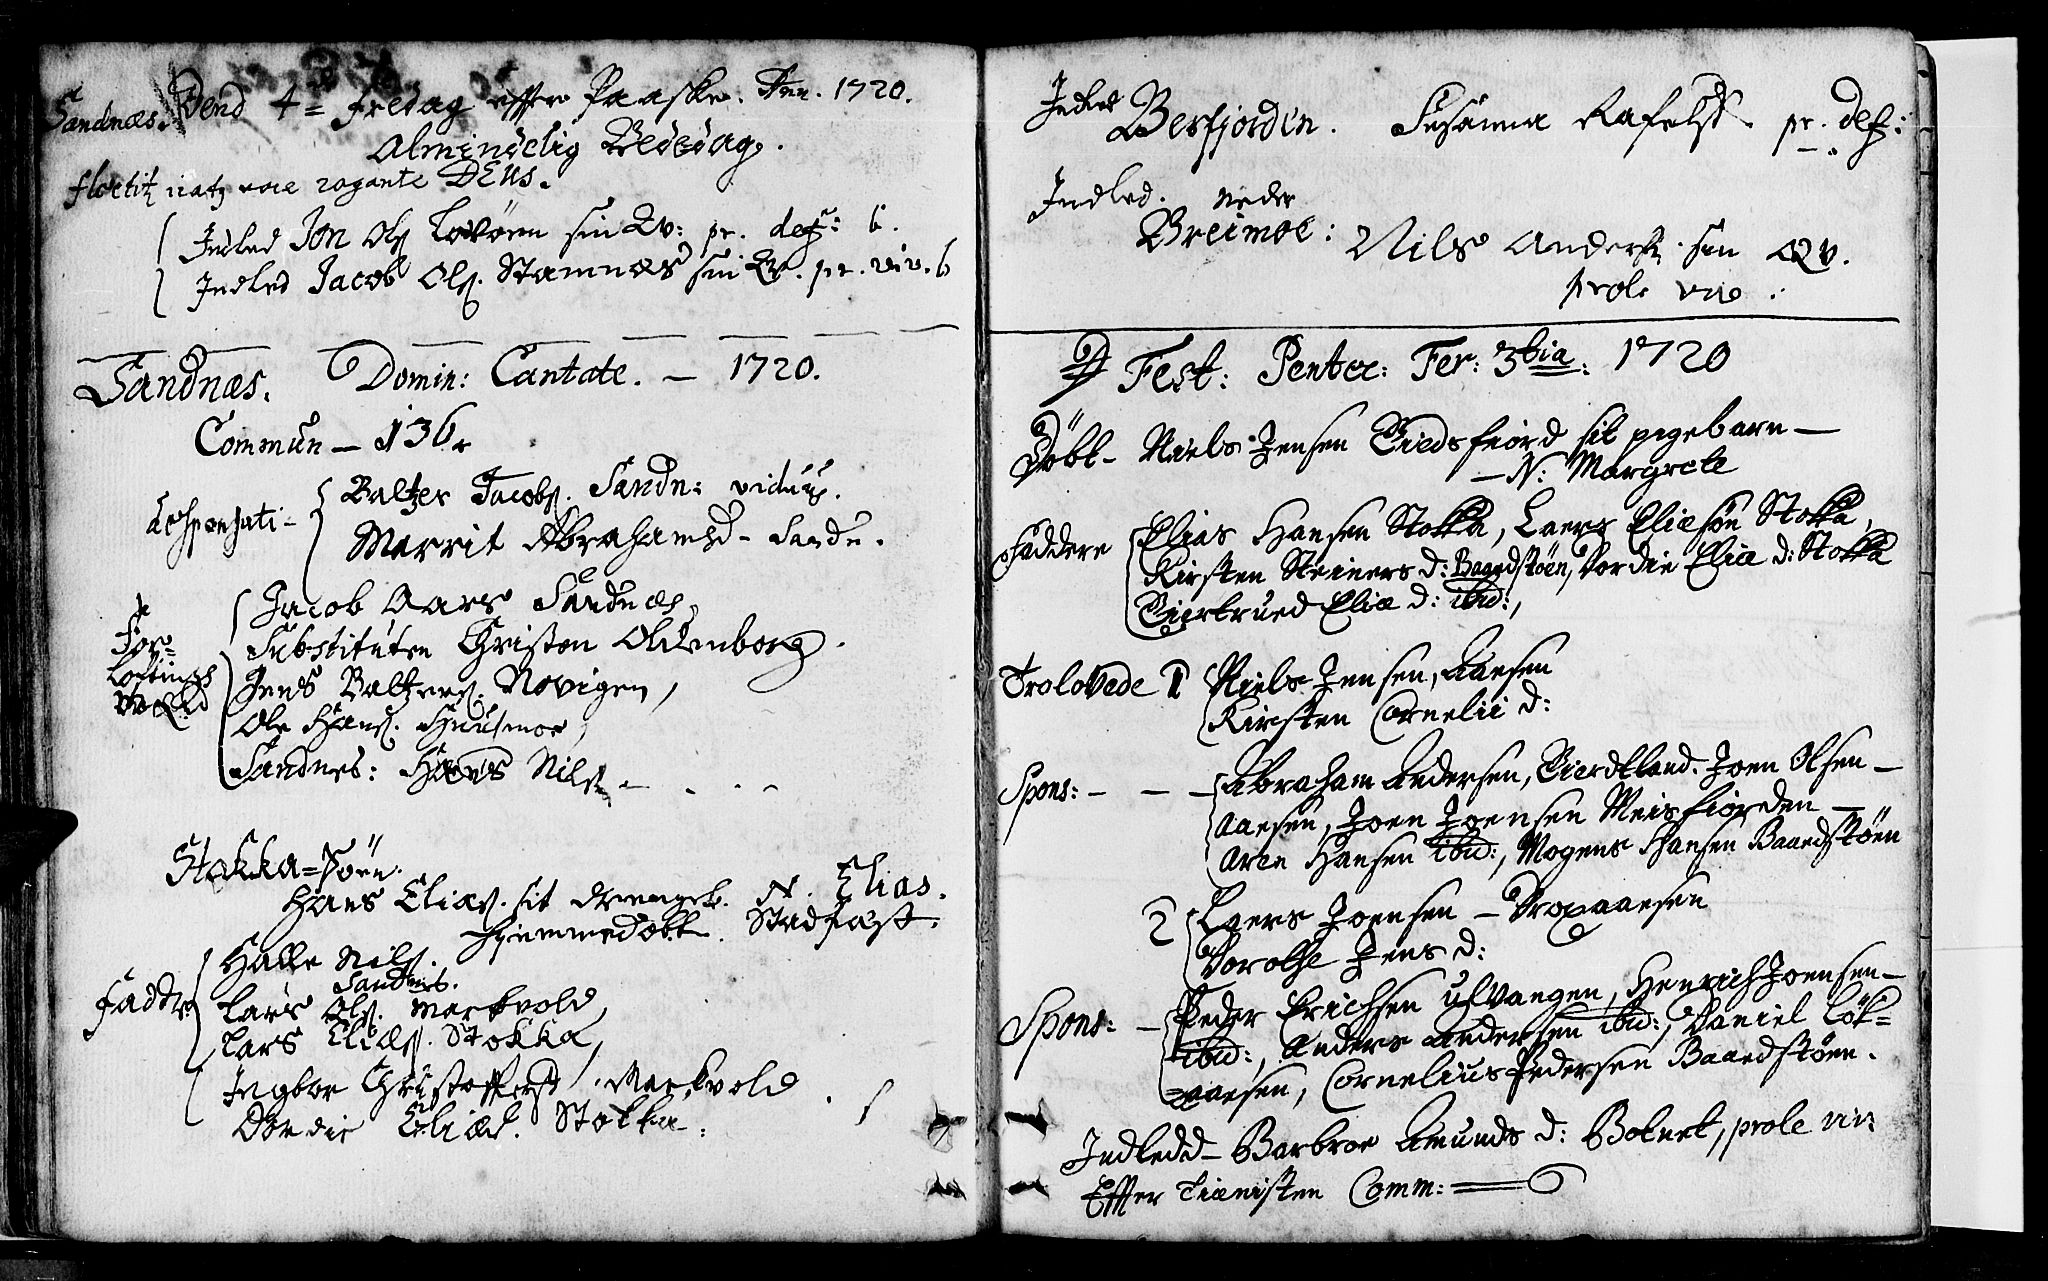 Sandnæs. Dend 4= fredag effter Paaske. 1720.
Almindelig Bededag.
DEUS.
Indled Jon Ols. Lovöen sin Qv: pr. def:
Indled Jacob Ols. Stamnæs sin Qv. pr. viv.
Sandnæs. Domin: Cantate. — 1720.
Commun — 136
desponsati — Baltzer Jacobs. Sandn: viduus.
Merrit Abrahamsd — Sandn.
For=
lovtings
Mænd
Jacob Aars Sandnæs,
Substituten Christen Oldenborg.
Jens Baltzers. Novigen,
Ole Hans.
Sandnes: Hans Nils.
Stokka=söen.
Hans Elias. sit drengeb. N. Elias.
Hjemmedöbt. Stadfæst.
Faddr. Halle Nils.
Sandnes.
Lars Ols. Markvold,
Lars Elias. Stokka,
Ingbor Christoffersd. Markvold
Dordie Eliæd. Stokka.
Indled Berfjorden. Susanna Rafelsd. pr. def:
Indled. Neder
Breimoe: Nils Anders. sin Qv.
prole viv.
Fest: Pentec: Fer: 3tia: 1720
Döbt — Niels Jensen Leedsfiord sit pigebarn —
— N: Margrete
Faddere Elias Hansen Stokka, Laers Eliæsön Stokka,
Kirsten Steiners d: Baardstöen, Dordie Eliæ d: Stokka
Giertrued Eliæ d: ibid:,
Trolovede 1 Niels Jensen, Aaesen
Kirsten Cornelii d:
Spons: — — — Abraham Andersen, Joen Olsen —
Aaesen, Joen Joensen Meisfiorden —
Aren Hansen ibid:, Mogens Hansen Baardstöen
2 Laers Joensen —
Dorothe Jens d:
Spons: — Peder Erichsen Ulvangen, Henrich Joensen —
ibid:, Anders Andersen ibid:, Daniel Lök=
=aaesen, Cornelius Pedersen Baardstöen.
Indledd — Barbroe Amunds d: Botnet, prole viv:
Effter tienisten Comm: